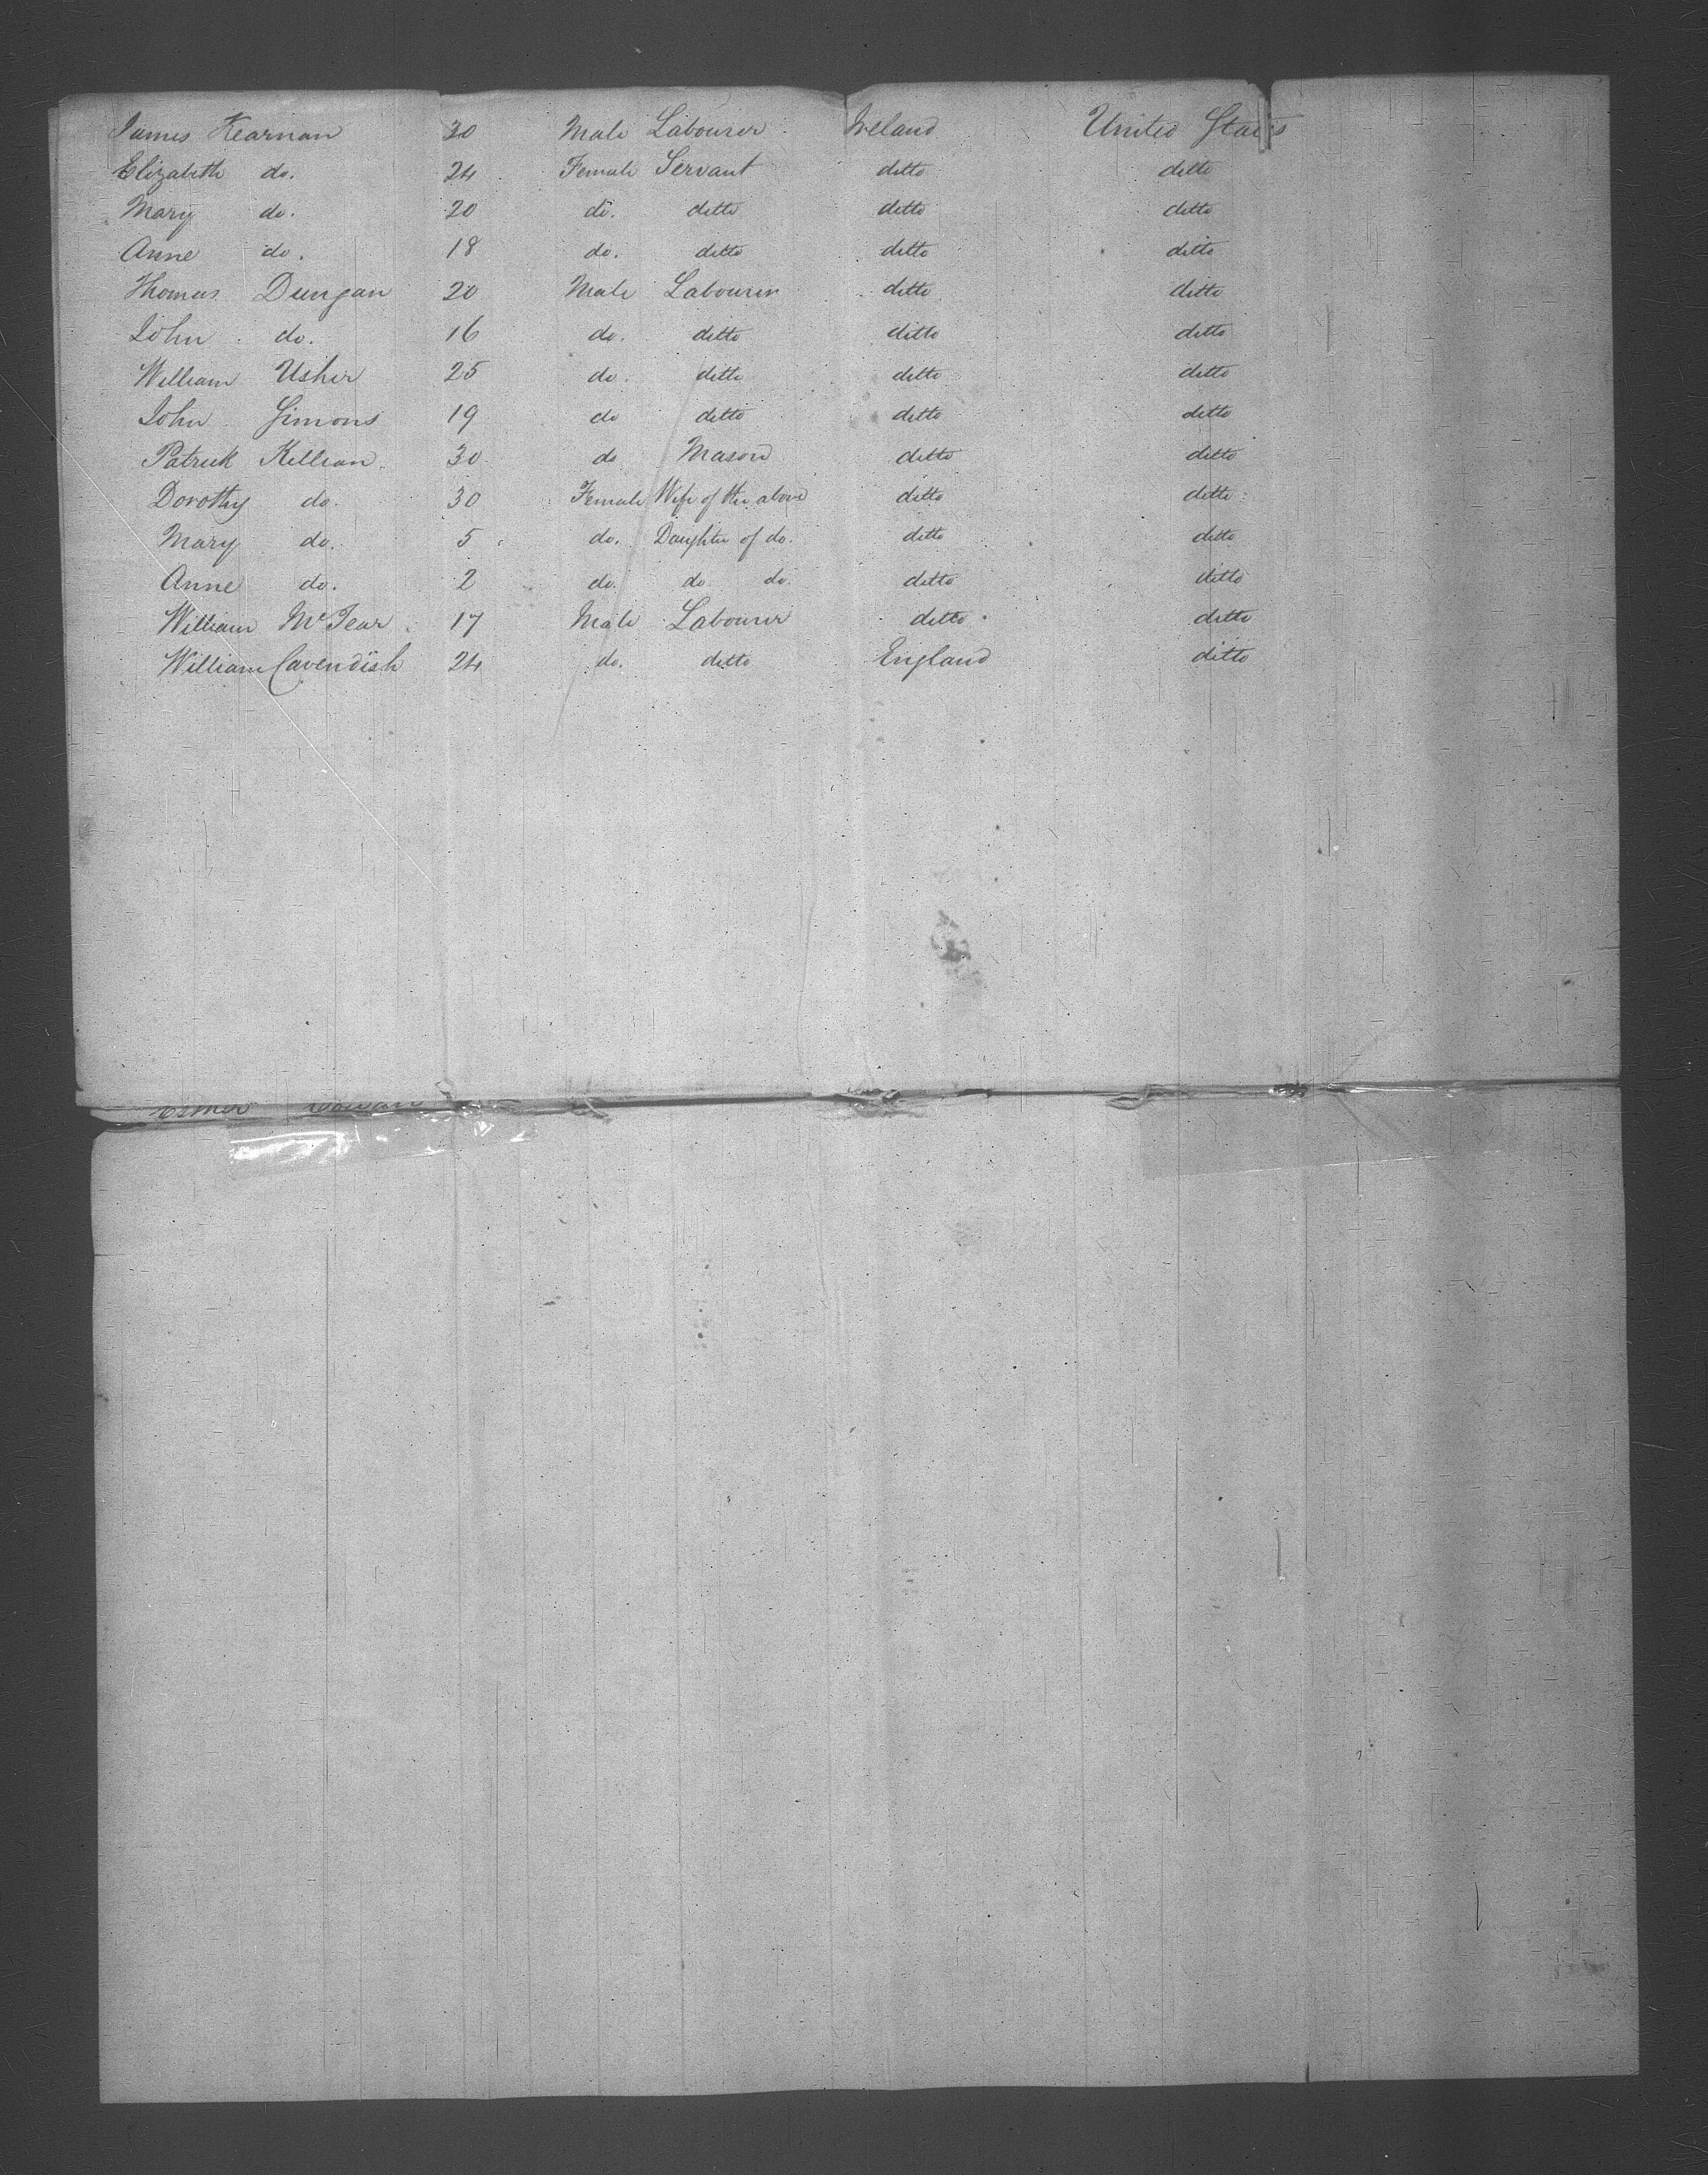 James Kearnan 30 Male Labourer Ireland United States
Elizabeth do. 24 Female Servant ditto ditto
Mary do. 20 do. ditto ditto ditto
Anne do. 18 do. ditto ditto ditto
Thomas Dungan 20 Male Labourer ditto ditto
John do. 16 do. ditto ditto ditto
William Usher 25 do. ditto ditto ditto
John Simons 19 do ditto ditto ditto
Patrick Killian 30 do Mason ditto ditto
Dorothy do. 30 Female Wife of the above ditto ditto
Mary do. 5 do. Daughter of do. ditto ditto
Anne do. 2 do. do. do. ditto ditto
William McTear 17 Male Labourer ditto ditto
William Cavendish 24 do. ditto England ditto